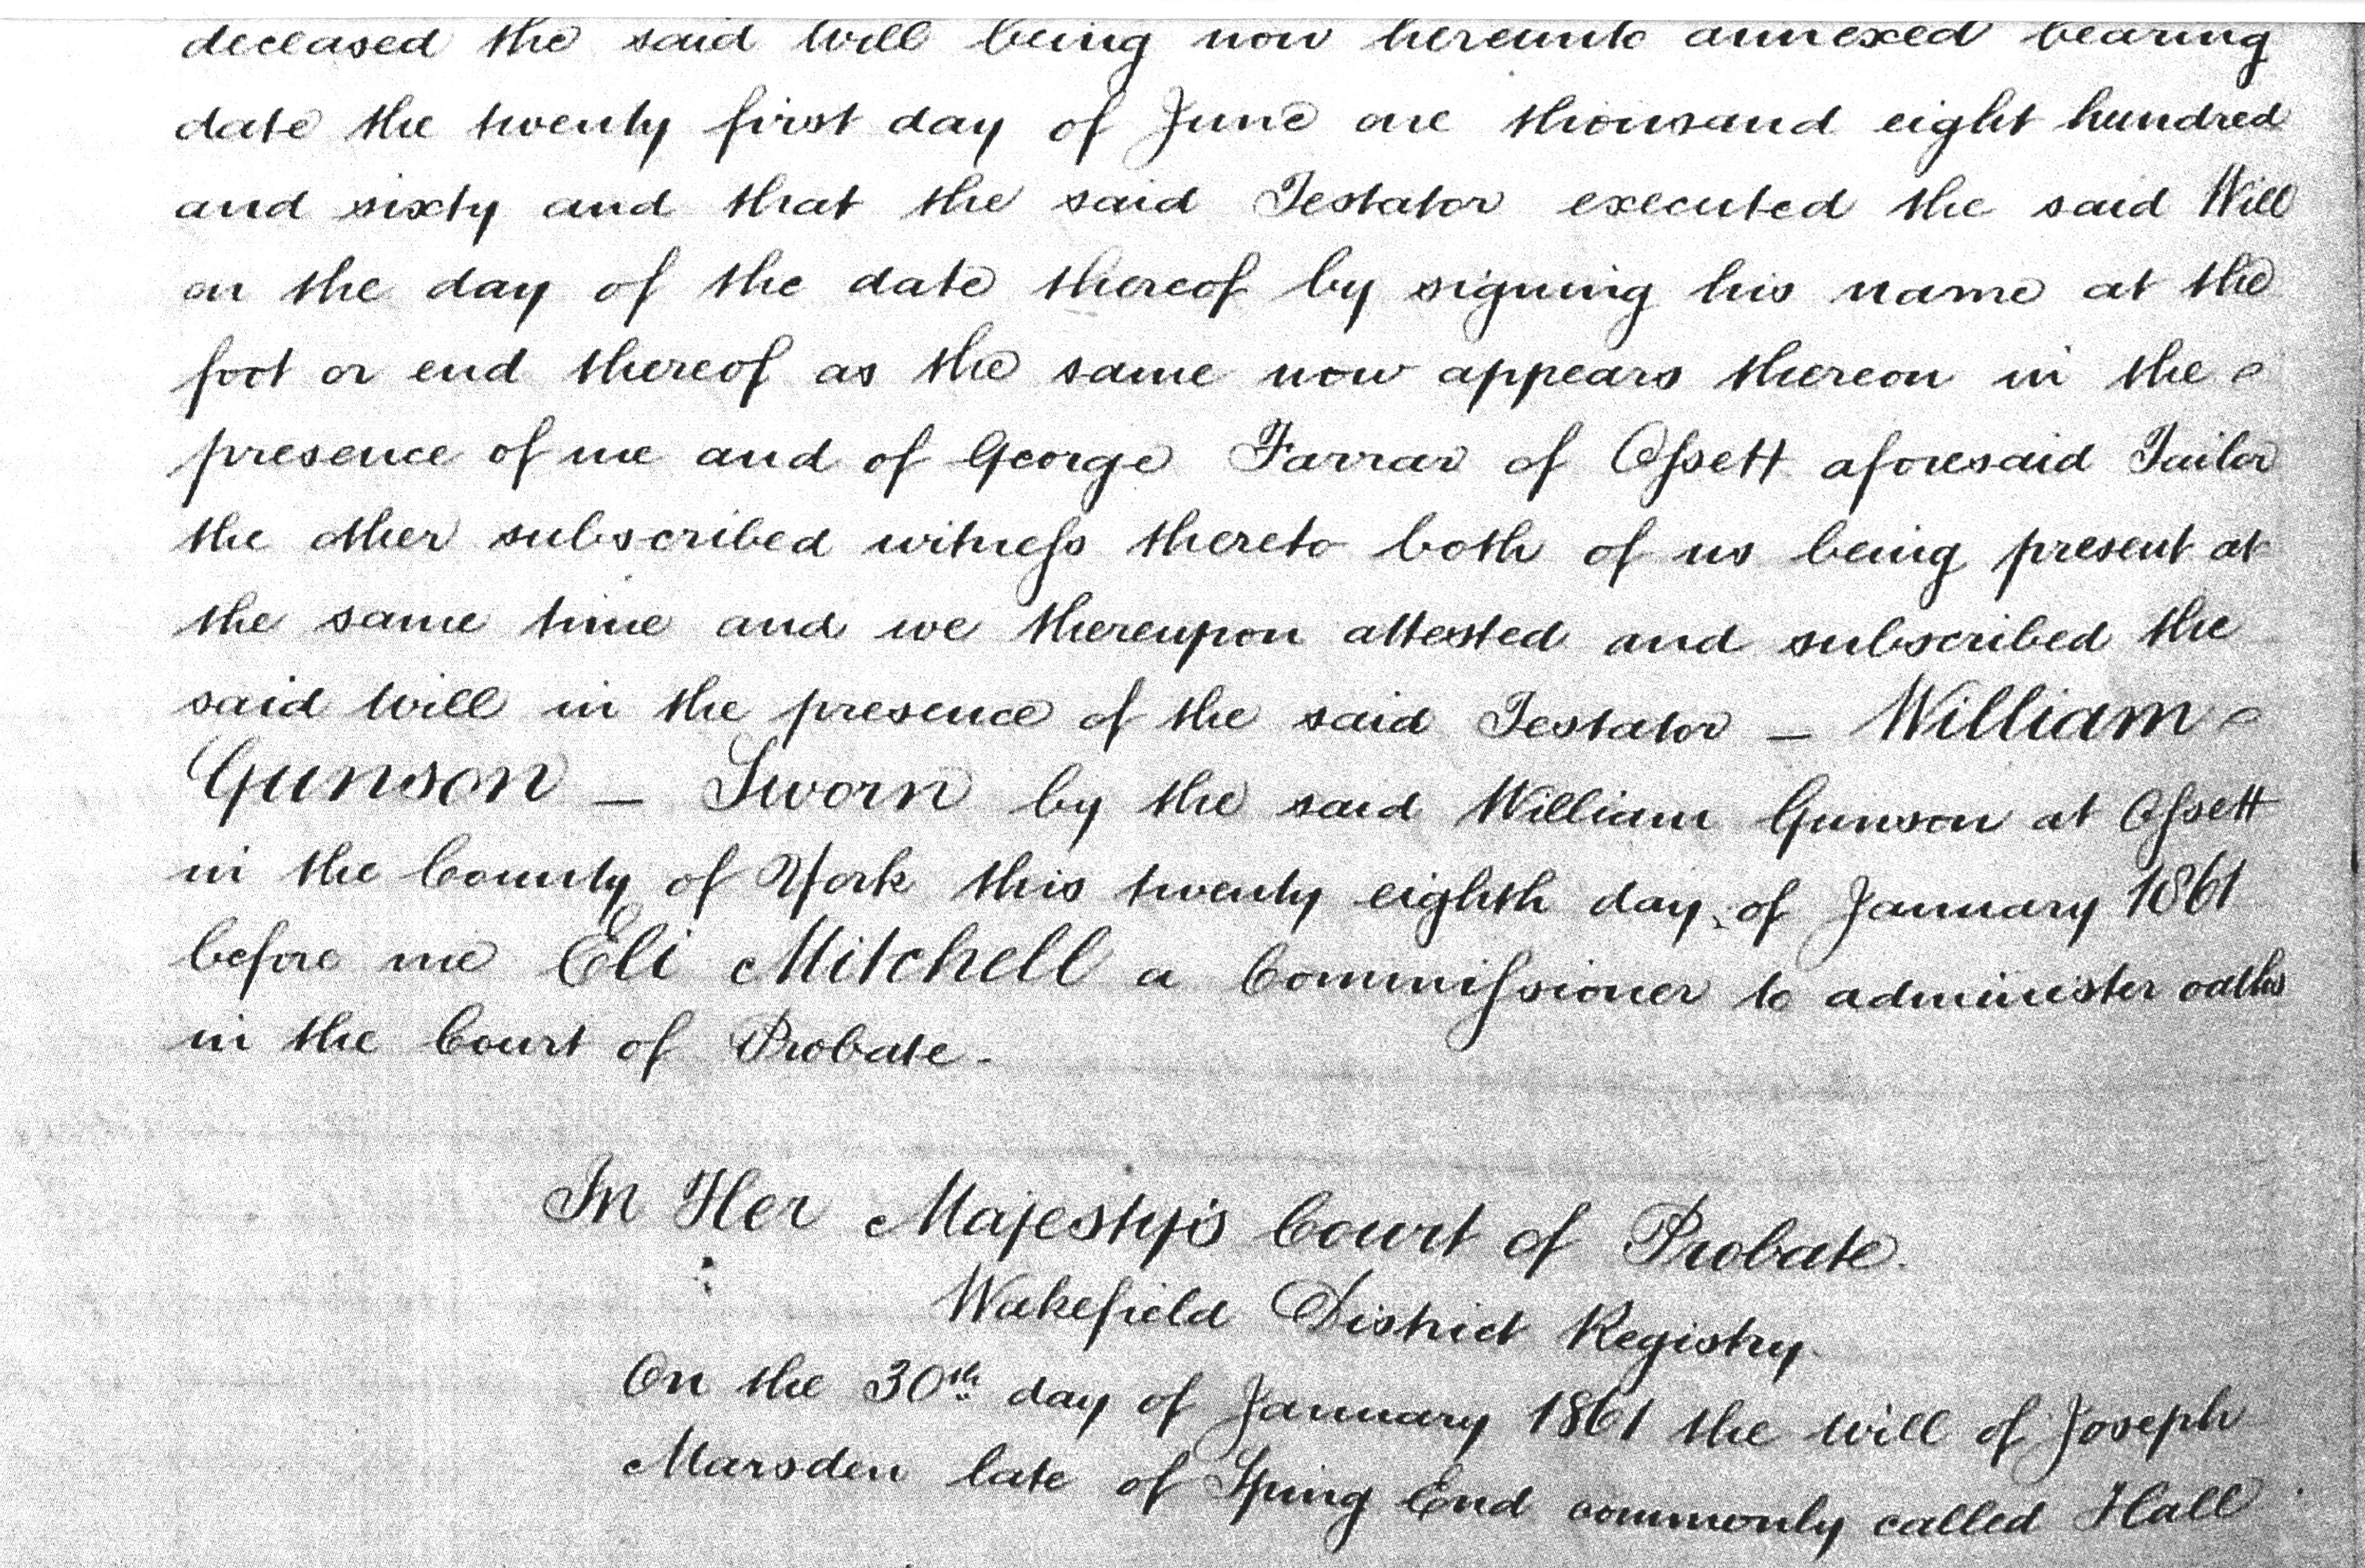 deceased the said Will being now hereunto annexed bearing
date the twenty first day of June one thousand eight hundred
and sixty and that the said Testator executed the said Will
on the day of the date thereof by signing his name at the
foot or end thereof as the same now appears thereon in the
presence of me and of George Farrar of Ossett aforesaid Tailor
the other subscribed witness thereto both of us being present at
the same time and we thereupon attested and subscribed the
said Will in the presence of the said Testator — William
Gunson — Sworn by the said William Gunson at Ossett
in the County of York this twenty eighth day of January 1861
before me Eli Mitchell a Commissioner to administer oaths
in the Court of Probate -
In Her Majesty's Court of Probate.
Wakefield District Registry.
On the 30th day of January 1861 the Will of Joseph
Marsden late of Spring End commonly called Hall